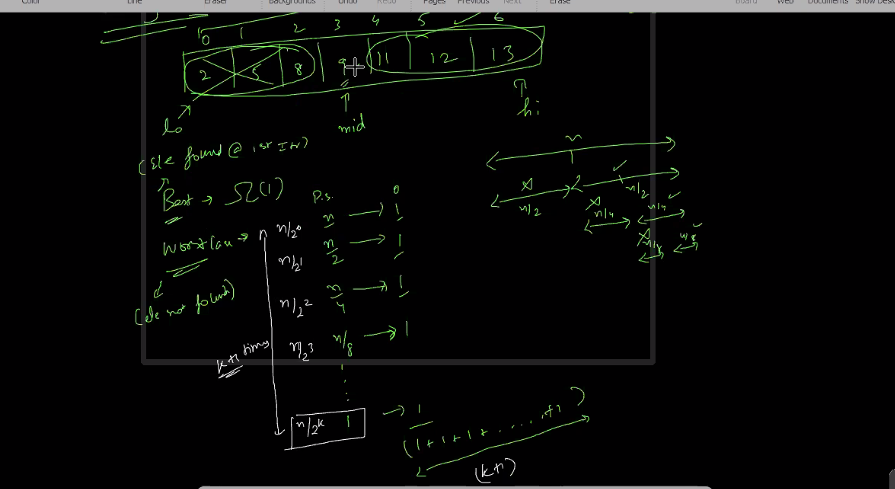 Color Line Eraser Backgrounds Undo Redo Pages Previous Next Erase Board Web Documents Show Desk
0 1 2 3 4 5 6
2 5 8 9 11 12 13
lo mid hi
(Ele found @ 1st Itr)
Best → Ω(1)
P.s. 0
n/2^0 n → 1
Worst Case →
n/2^1 n/2 → 1
(ele not found)
n/2^2 n/4 → 1
n/2^3 n/8 → 1
k+1 times
n/2^k 1 → 1
(1+1+1+.....+1)
(k+1)
n
n/2 n/2
n/4 n/4
n/8 n/8